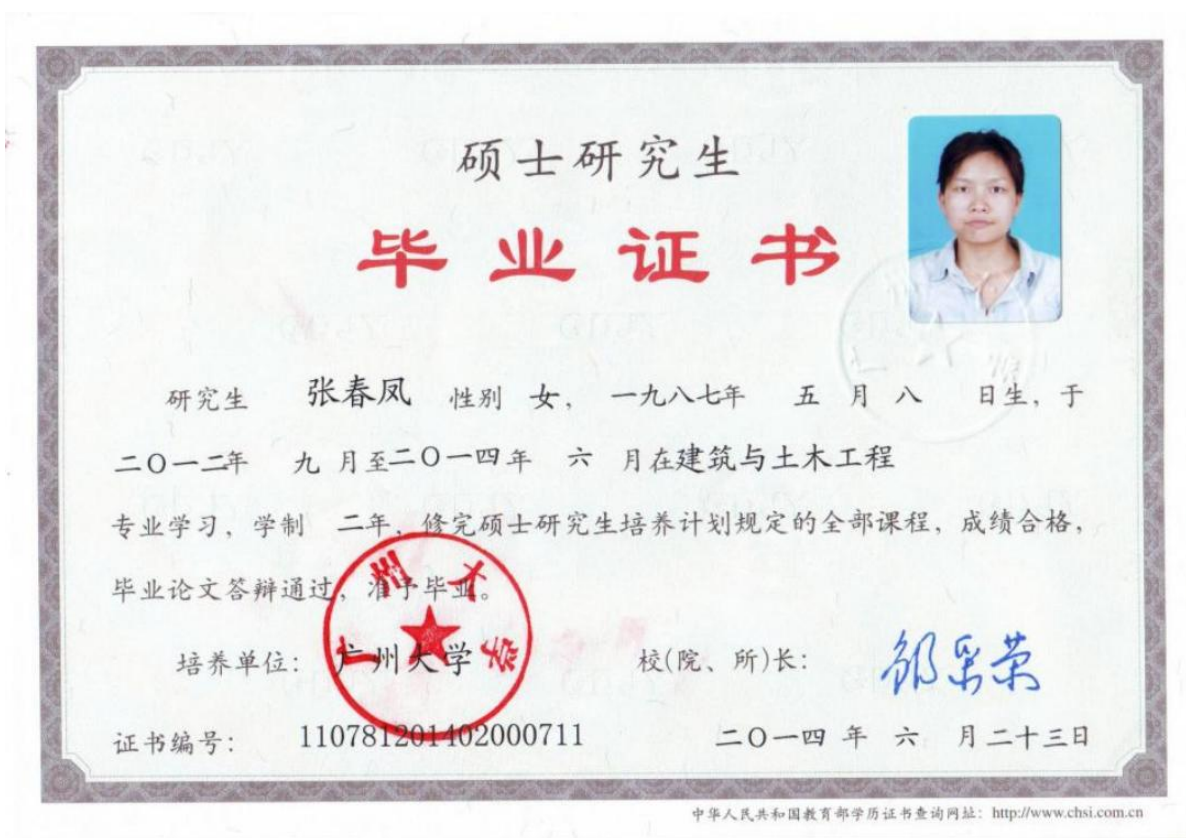 硕士研究生
毕业证书
研究生 张春凤 性别 女, 一九八七年 五 月 八 日生, 于
二〇一二年 九 月至二〇一四年 六 月在建筑与土木工程
专业学习, 学制 二年, 修完硕士研究生培养计划规定的全部课程, 成绩合格,
毕业论文答辩通过, 准予毕业。
广州大学
培养单位: 广州大学 校(院、所)长: 邹采荣
证书编号: 110781201402000711 二〇一四 年 六 月二十三日
中华人民共和国教育部学历证书查询网址: http://www.chsi.com.cn